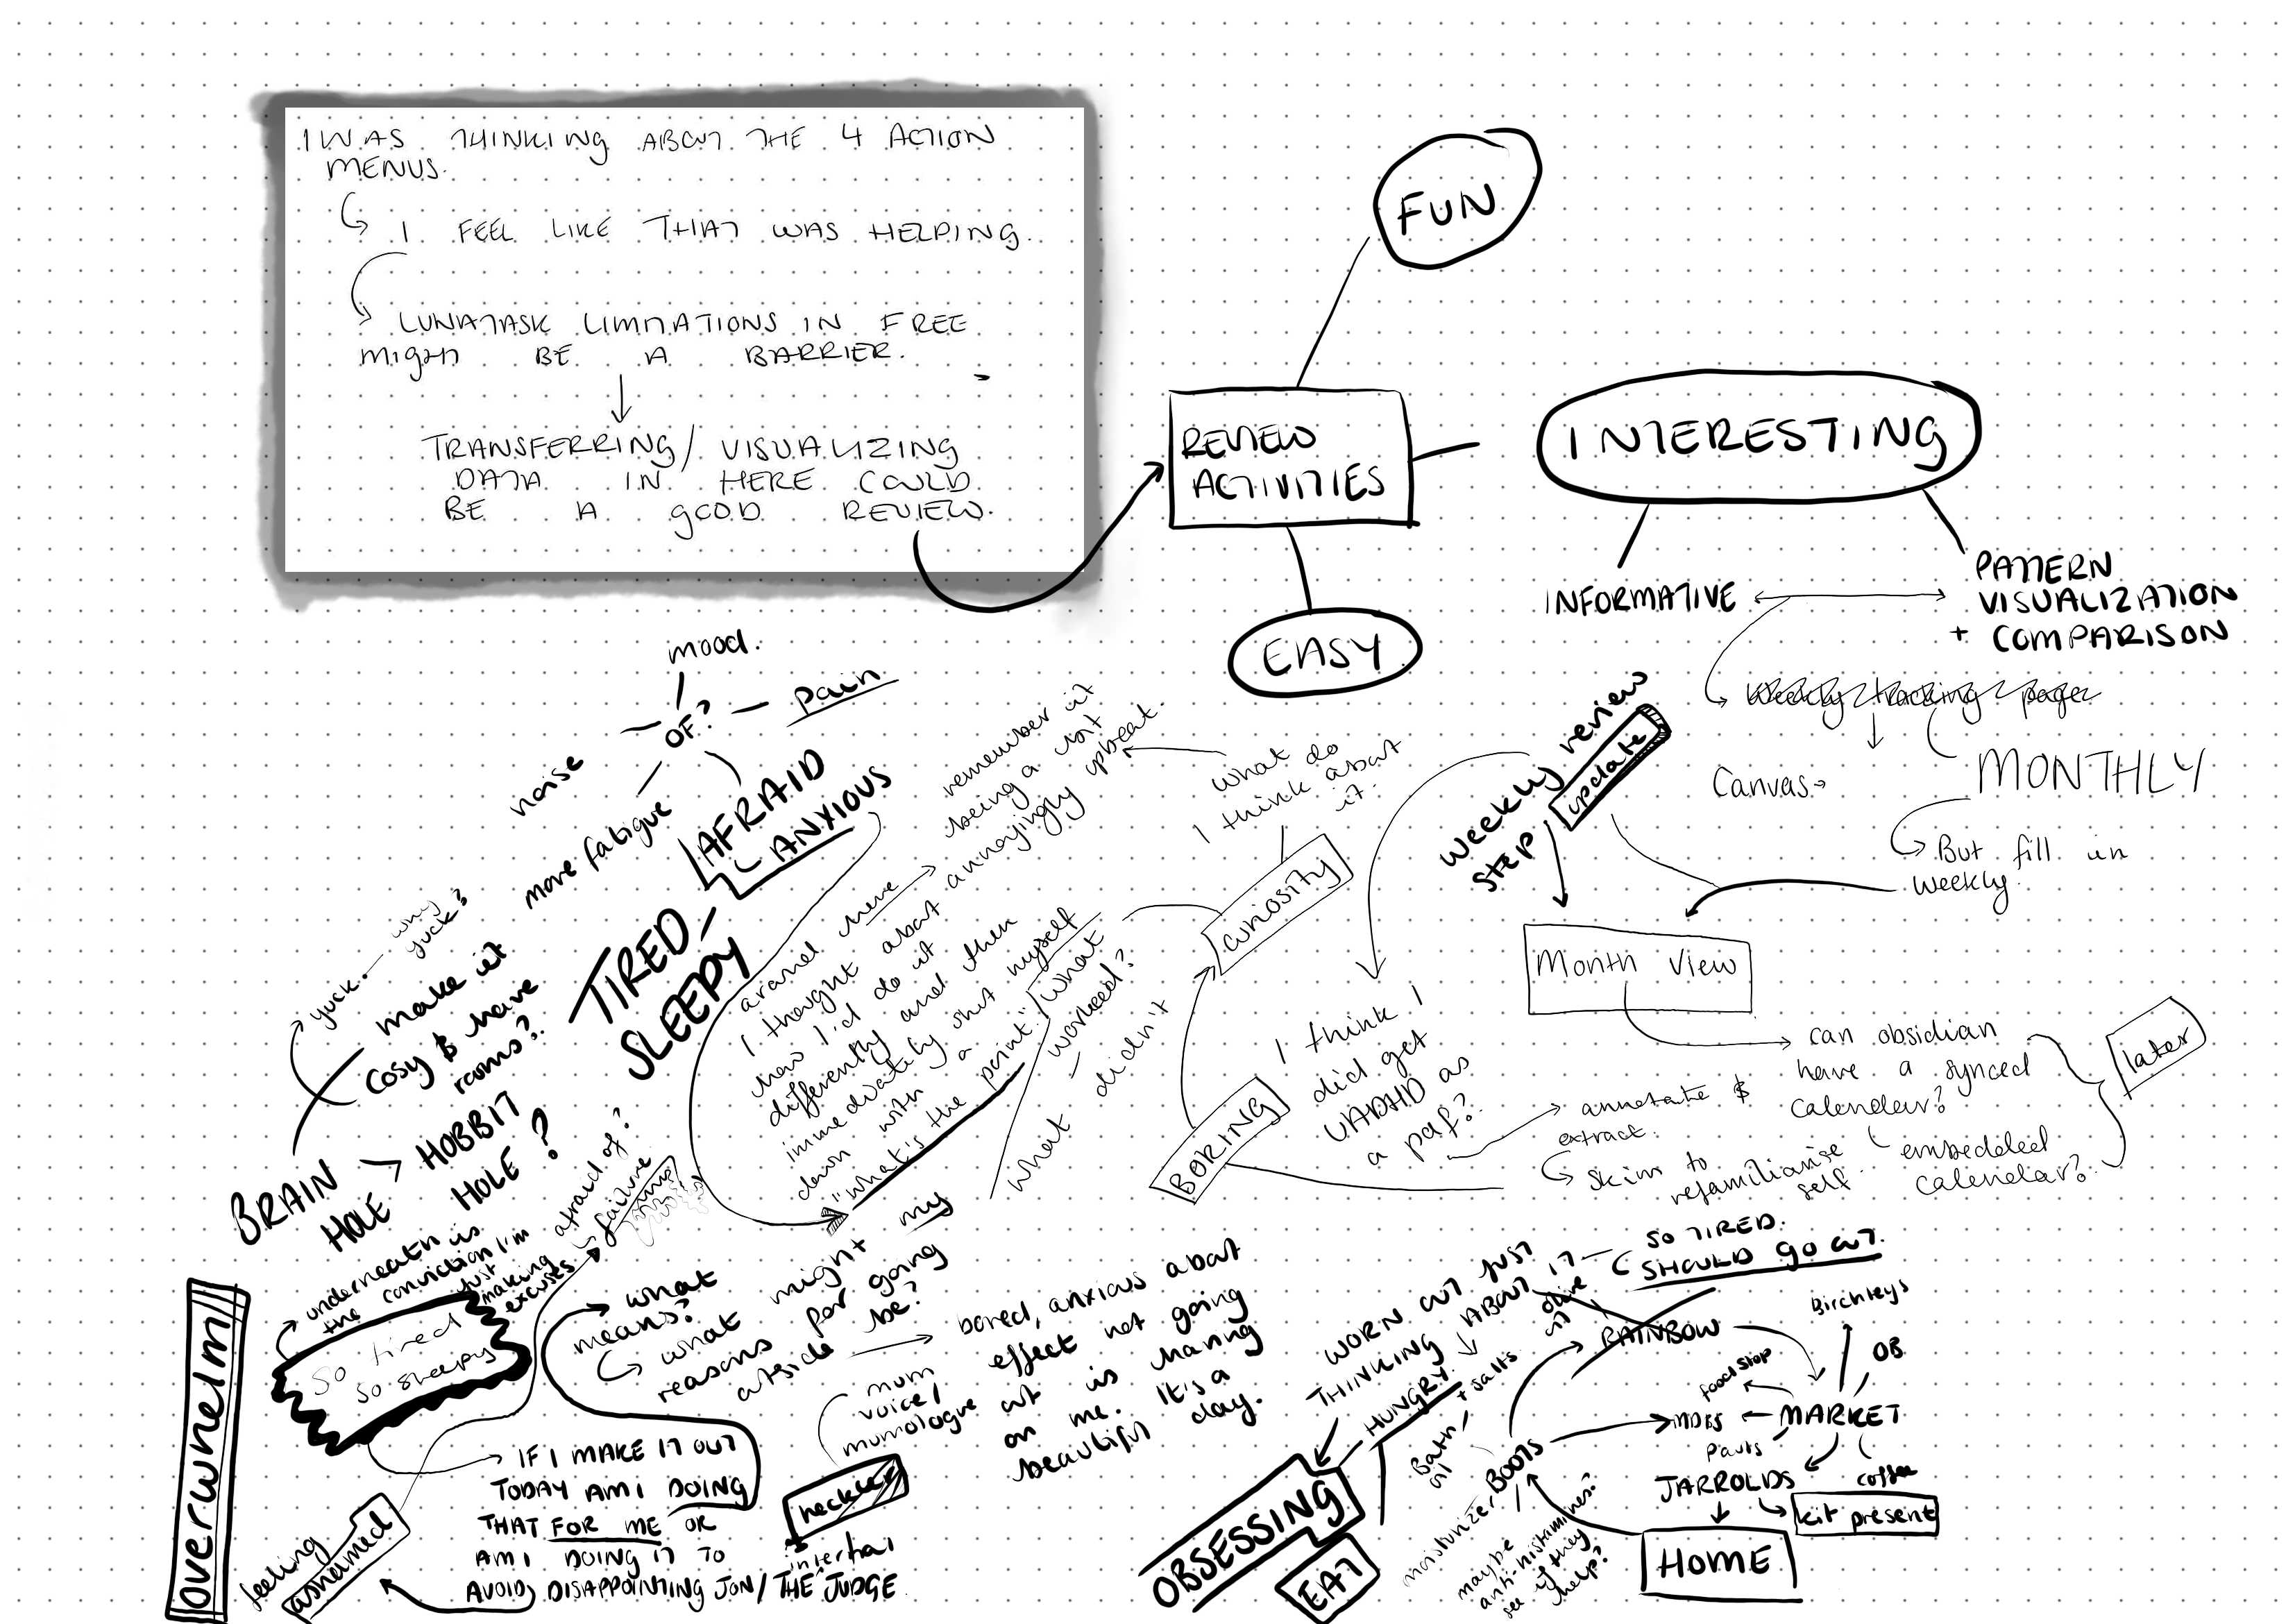 I WAS THINKING ABOUT THE 4 ACTION
MENUS.
I FEEL LIKE THAT WAS HELPING.
LUNATASK LIMITATIONS IN FREE
MIGHT BE A BARRIER.
TRANSFERRING/VISUALIZING
DATA IN HERE COULD
BE A GOOD REVIEW.
REVIEW
ACTIVITIES
FUN
INTERESTING
EASY
INFORMATIVE
PATTERN
VISUALIZATION
+ COMPARISON
Weekly tracking page
Canvas
MONTHLY
But fill in
weekly.
weekly review
step
update
Month View
can obsidian
have a synced
calendar?
embedded
calendar?
later
I think I
did get
UADHD as
a pdf?
annotate &
extract.
skim to
refamiliarise
self
BORING
curiosity
what do
I think about
it.
remember it
being a bit
annoyingly upbeat.
what
worked?
what didn't
around here
I thought about
how I'd do it
differently and then
immediately shut myself
down with a
"what's the point."
mood.
pain
OF?
noise
more fatigue
AFRAID
ANXIOUS
TIRED
SLEEPY
yuck.
why
yuck?
make it
cosy & have
rooms?
BRAIN
HOLE
HOBBIT
HOLE?
underneath is
the conviction I'm
just
making
excuses
afraid of?
failure
so tired
so sleepy
overwhelm
feeling
ashamed
IF I MAKE IT OUT
TODAY AM I DOING
THAT FOR ME OR
AM I DOING IT TO
AVOID DISAPPOINTING JON/THE JUDGE
internal
heckler
mum
voice/
mumologue
what
means?
what might my
reasons for going
outside be?
bored, anxious about
effect not going
out is having
on me. It's a
beautiful day.
WORN OUT JUST
THINKING ABOUT IT
SO TIRED.
SHOULD GO OUT.
HUNGRY
OBSESSING
EAT
RAINBOW
olive
oil
+ salts
Bath
oil
BOOTS
moisturizer
maybe
anti-histamines?
see if they
help?
Birchleys
OB
food stop
MARKET
M&S
pants
JARROLDS
coffee
kit present
HOME